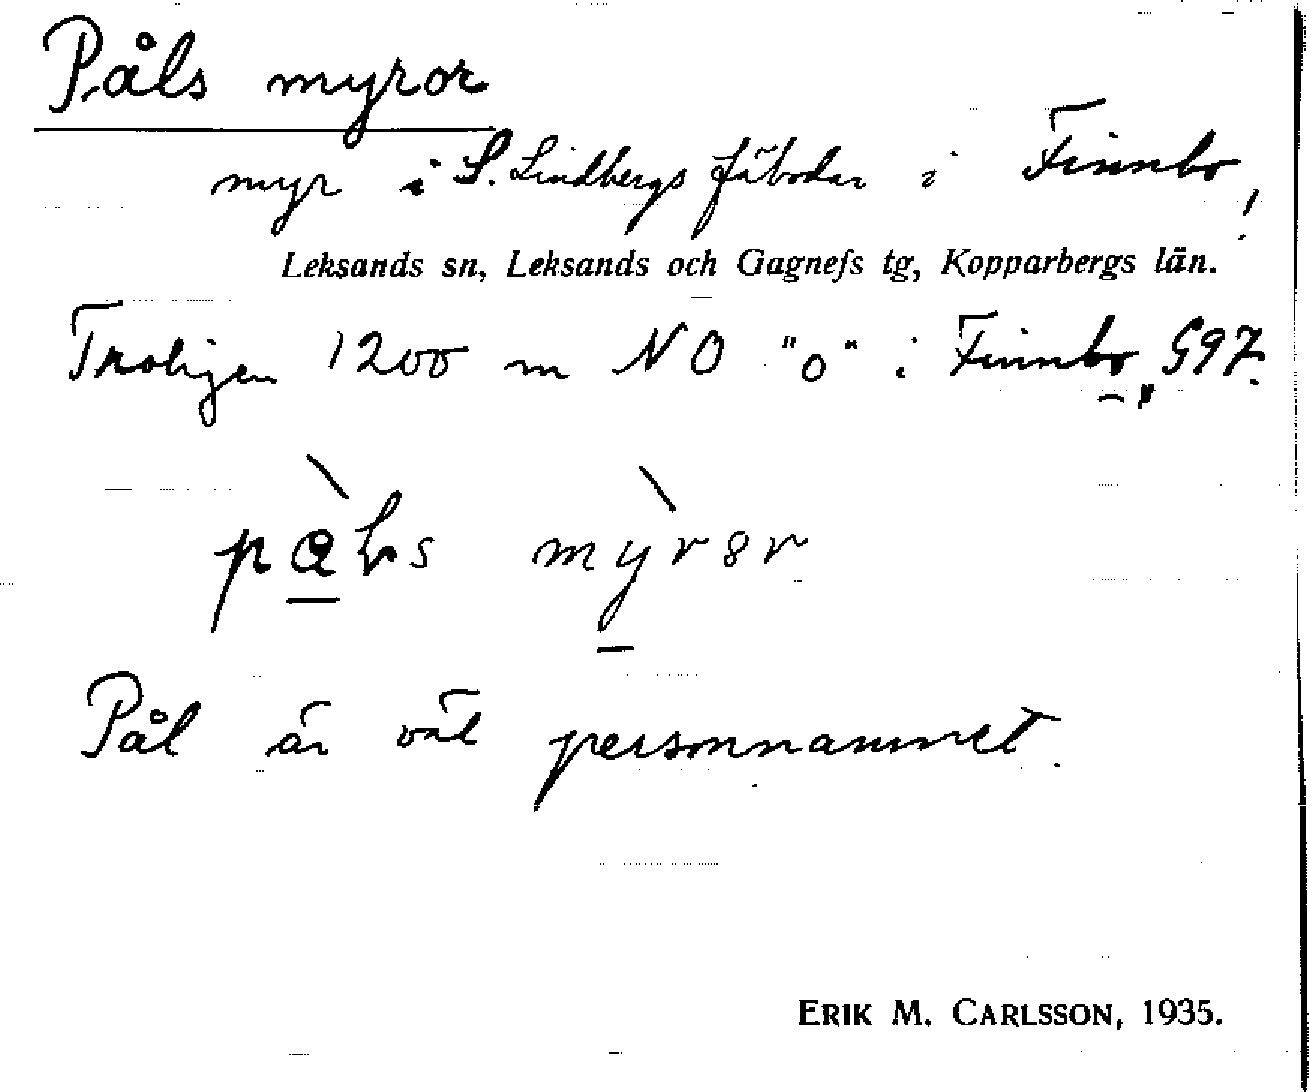 Påls myror
myr i S. Lindbergs fäbodar i Finnbo!
Leksands sn, Leksands och Gagnefs tg, Kopparbergs län.
Troligen 1200 m NO "o" i Finnbo, G97.
myrer
Pål är väl personnamnet.
ERIK M. CARLSSON, 1935.